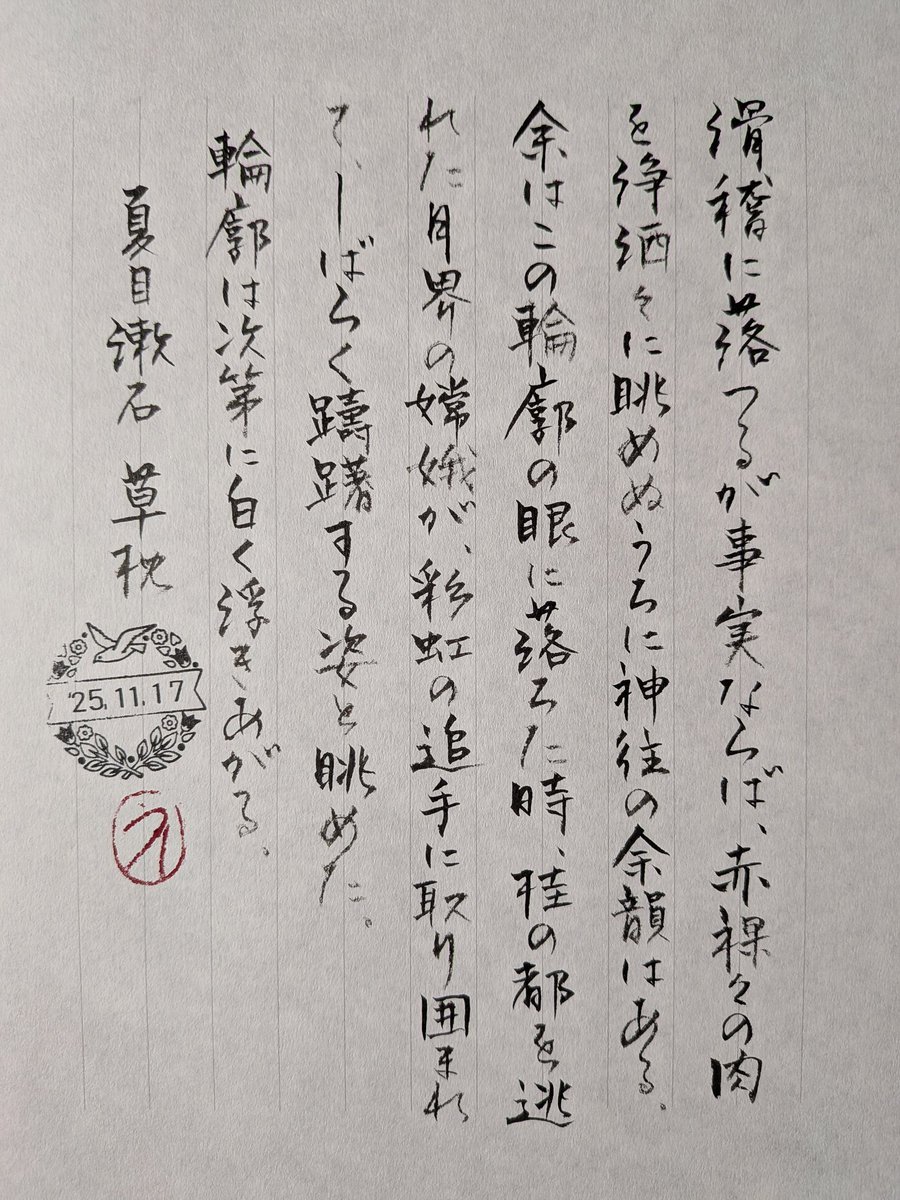 滑稽に落つるが事実ならば、赤裸々の肉
を浄洒々に眺めぬうちに神往の余韻はある。
余はこの輪廓の眼に落ちた時、桂の都を逃
れた月界の嫦娥が、彩虹の追手に取り囲まれ
て、しばらく躊躇する姿と眺めた。
輪廓は次第に白く浮きあがる。
夏目漱石 草枕
'25.11.17